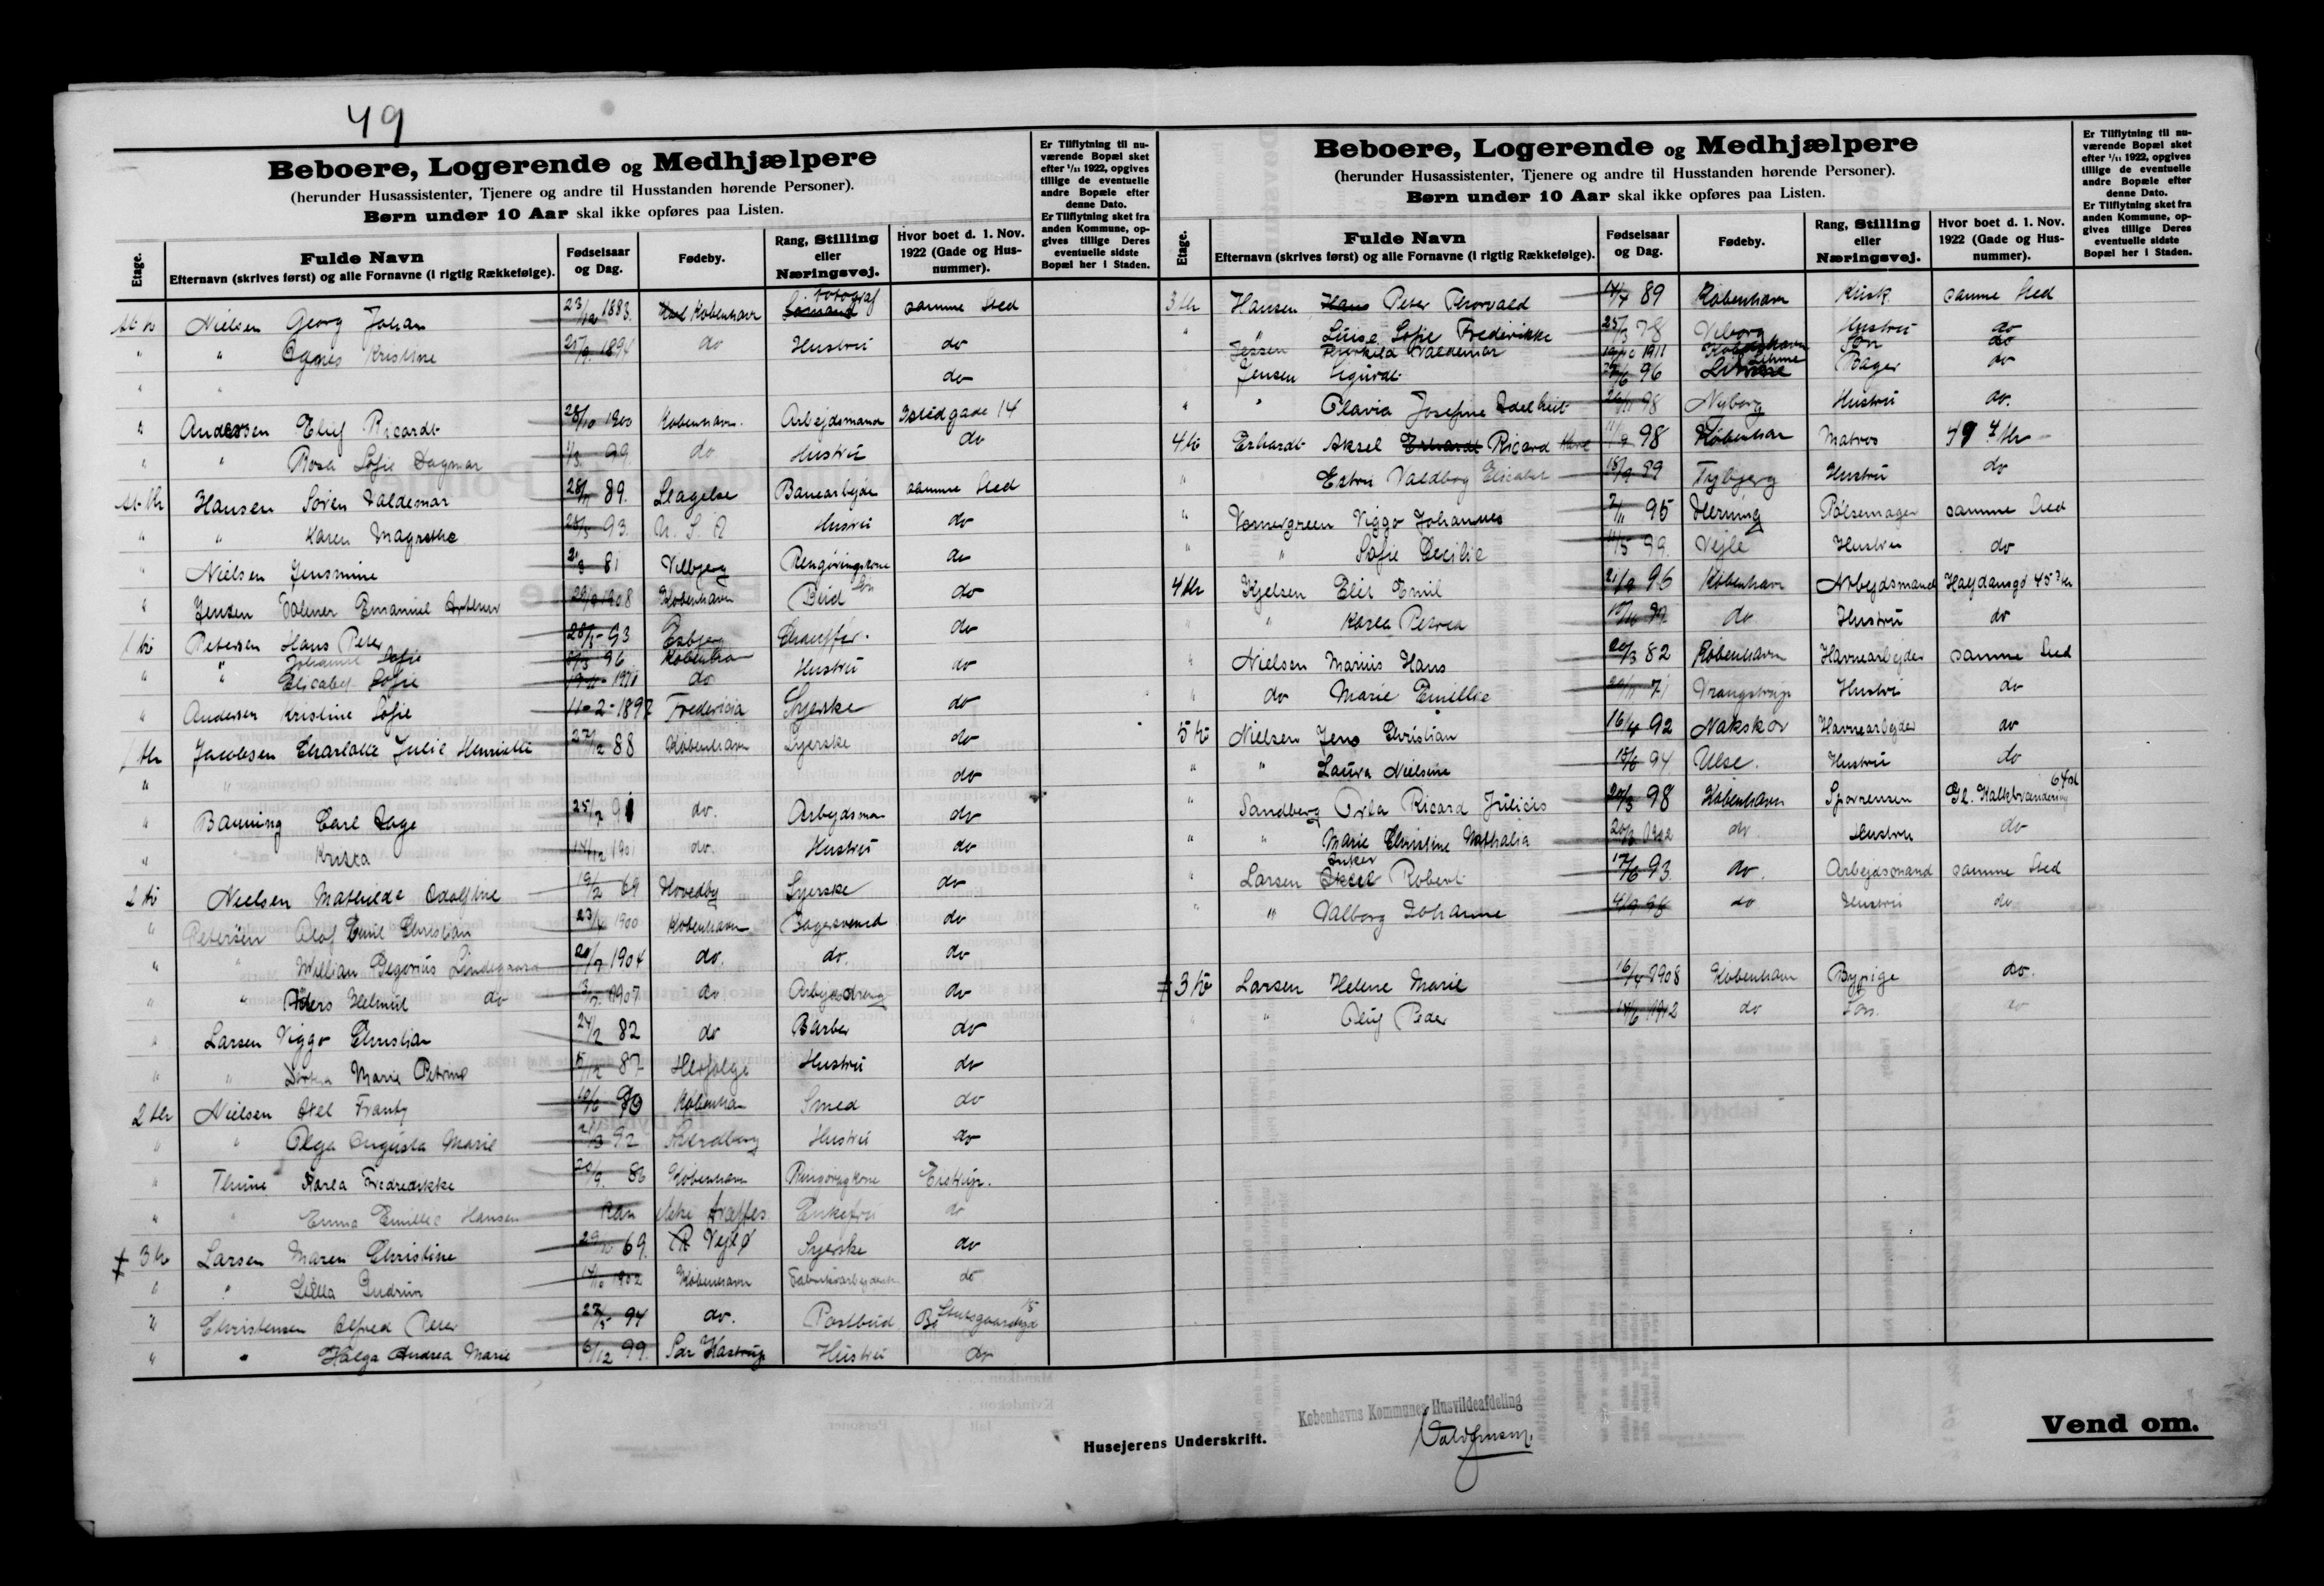 49
Beboere, Logerende og Medhjælpere
(herunder Husassistenter, Tjenere og andre til Husstanden hørende Personer).
Børn under 10 Aar skal ikke opføres paa Listen.
Er Tilflytning til nuværende Bopæl sket efter 1/11 1922, opgives tillige de eventuelle andre Bopæle efter denne Dato. Er Tilflytning sket fra anden Kommune, opgives tillige Deres eventuelle sidste Bopæl her i Staden.
Etage. Fulde Navn Efternavn (skrives først) og alle Fornavne (i rigtig Rækkefølge). Fødselsaar og Dag. Fødeby. Rang, Stilling eller Næringsvej. Hvor boet d. 1. Nov. 1922 (Gade og Husnummer).
St tv Nielsen Georg Johan 23/12 1883. København fotograf samme Sted
" " Agnes Kristine 25/9 1894 do Hustru do
" " do
" Andersen Eluf Ricardt 28/10 1900 København. Arbejdsmand Istedgade 14
" " Rosa Sofie Dagmar 1/3 99 do. Hustru do
St th Hansen Sören Valdemar 28/11 89. Slagelse Banearbejder samme Sted
" " Karen Magrethe 93. U. S. A Hustru do
" Nielsen Jensmine 81 Vilbjerg Rengöringskone do
" Jensen Valmer Emanuel 1908 København Bud Sön do
1 tv Petersen Hans Peter 28/5 93 Esbjerg Chauffør. do
" " Johanne Sofie 96 København Hustru do
" " Elisabet Sofie do
" Andersen Kristine Sofie 11-2-1897 Fredericia Syerske do
1 th Jacobsen Charlotte Julie Henriette 27/12 88 København Syerske do
" " do
" Banning Carl Aage 25/7 91 do. Arbejdsman do
" Krista 14/12 1901 do. Hustru do
2 tv Nielsen Mathilde Adolfine 19/2 69 Hovedby Syerske do
" Petersen Olaf Emil Christian 23/4 1900 København Bagersvend do
" " Willian Gegorius Lindegaard 20/7 1904 do. do. do
" " Helmut do 1907 do Arbejdsdreng do
" Larsen Viggo Christian 24/12 82 do Barber do
" " Marie Petrine 5/12 87 Herfølge Hustru do
2 th Nielsen Axel Frantz København Smed do
" " Olga Augusta Marie 92 Nordborg Hustru do
" Thune Karla Fredrekke 20/9. 86 København do
" " Emma Emillie Hansen Kan ikke træffes Enkefru do
3 tv Larsen Maren Christine 69. Vejlø Syerske do
" " Gudrun 1902 København do
" Christensen Alfred Peter 27/5 94 do. Postbud
" " Helga Andrea Marie 6/12 99. Sdr Kastrup Hustru do
Beboere, Logerende og Medhjælpere
(herunder Husassistenter, Tjenere og andre til Husstanden hørende Personer).
Børn under 10 Aar skal ikke opføres paa Listen.
Er Tilflytning til nuværende Bopæl sket efter 1/11 1922, opgives tillige de eventuelle andre Bopæle efter denne Dato. Er Tilflytning sket fra anden Kommune, opgives tillige Deres eventuelle sidste Bopæl her i Staden.
Etage. Fulde Navn Efternavn (skrives først) og alle Fornavne (i rigtig Rækkefølge). Fødselsaar og Dag. Fødeby. Rang, Stilling eller Næringsvej. Hvor boet d. 1. Nov. 1922 (Gade og Husnummer).
3 th Hansen Hans Peter Thorvald 89 København Kusk. samme Sted
" " Luise Sofie Frederikke 25/3 78 Viborg Hustru do
Jessen Valdemar 1911 København Sön do
Jensen Sigurdt 96 Bager do
" " Olavia Josefine Adelheit 98 Nyborg Hustru do.
4 tv Erhardt Aksel Ricard 98 København Matros 49 4 th
" Valdborg Elisabet 15/9 89 Tybjerg Hustru do
" Vennergreen Viggo Johannes 7/11 95 Herning Pölsemager samme Sted
" " Sofie Cecilie 11/5 99. Vejle Hustru do
4 th Kjelsen Elis Emil 21/9 96 København Arbejdsmand
" " Karla Petrea do Hustru do
" Nielsen Marius Hans 20/3 82 København Havnearbejder samme Sted
" do Marie Emillie 71 Vrangstrup Hustru do
5 tv Nielsen Jens Christian 16/4 92 Nakskov Havnearbejder do
" " Laura Nielsine 15/6 94 Ulse. Hustru do
" Sandberg Orla Ricard Julius 20/3 98 København Sporrenser Gl. Kalkbrænderivej
" " Marie Christine Nathalia 1902 do. Hustru do
" Larsen Anker Robert 17/6 93 do. Arbejdsmand samme Sted
" " Valborg Johanne do Hustru do
3 tv Larsen Helene Marie 16/4 1908 København Bypige do.
" " Oluf Peder 14/6 1912 do Sön. do
Husejerens Underskrift.
Københavns Kommunes Husvildeafdeling
Vend om.